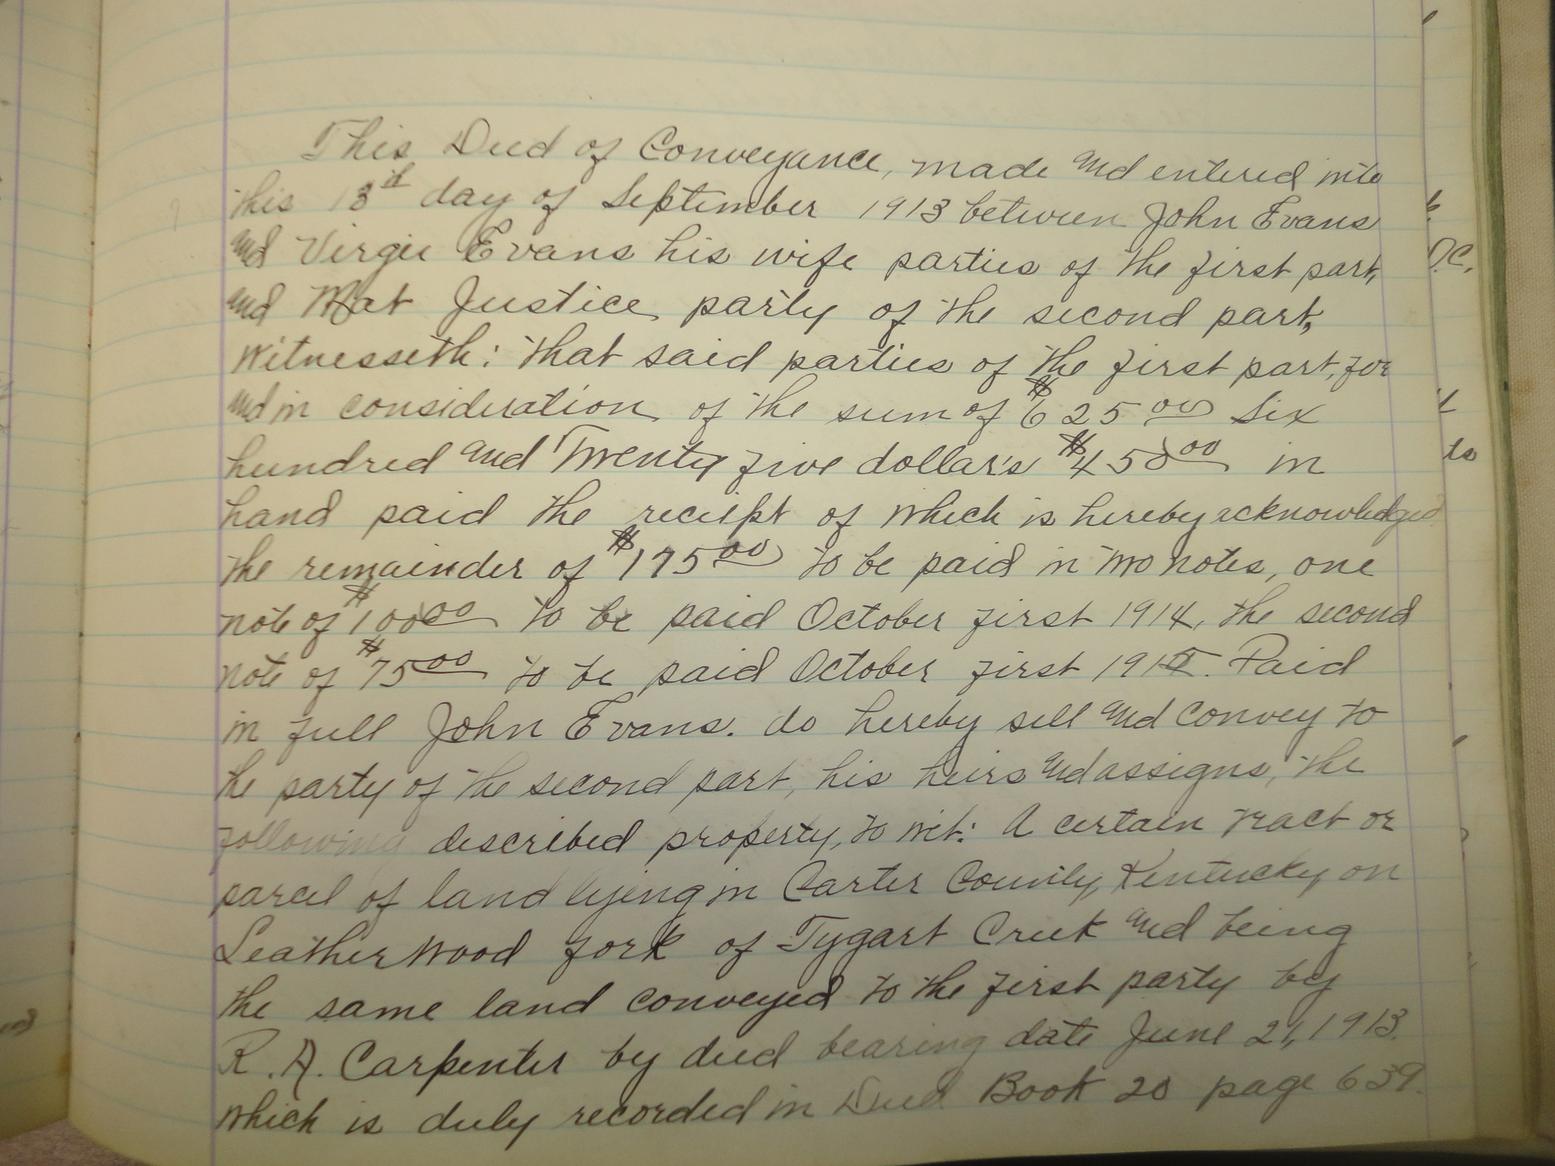 This Deed of Conveyance, made and entered into
this 13th day of September 1913 between John Evans
and Virgie Evans his wife parties of the first part,
and Mat Justice party of the second part,
Witnesseth: that said parties of the first part, for
and in consideration of the sum of $625.00 Six
hundred and Twenty five dollars $450.00 in
hand paid the receipt of which is hereby acknowledged
the remainder of $175.00 to be paid in two notes, one
note of $100.00 to be paid October first 1914, the second
note of $75.00 to be paid October first 1915. Paid
in full John Evans. do hereby sell and convey to
the party of the second part, his heirs and assigns, the
following described property, to wit: A certain tract or
parcel of land lying in Carter County, Kentucky on
Leatherwood fork of Tygart Creek and being
the same land conveyed to the first party by
R. A. Carpenter by deed bearing date June 21, 1913.
which is duly recorded in Deed Book 20 page 639.
D.C.
to